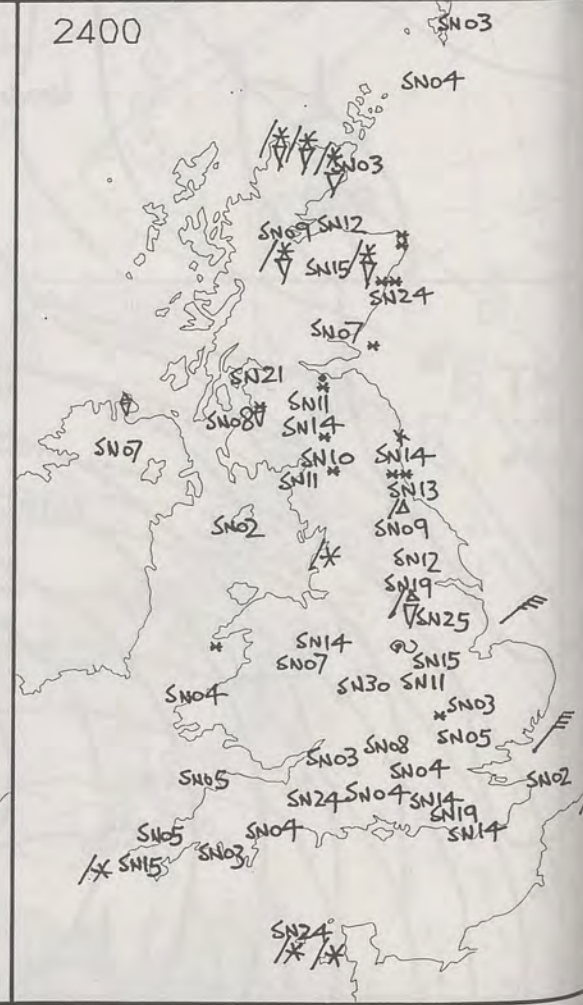 2400
SN03
SN04
SN03
SN09 SN12
SN15
SN24
SN07
SN21
SN11
SN08
SN14
SN07
SN10 SN14
SN11
SN13
SN02
SN09
SN12
SN19
SN25
SN14
SN07
SN15
SN30 SN11
SN04
SN03
SN05
SN03 SN08
SN04
SN05
SN02
SN24 SN04 SN14
SN19
SN05 SN04
SN14
SN15 SN03
SN24